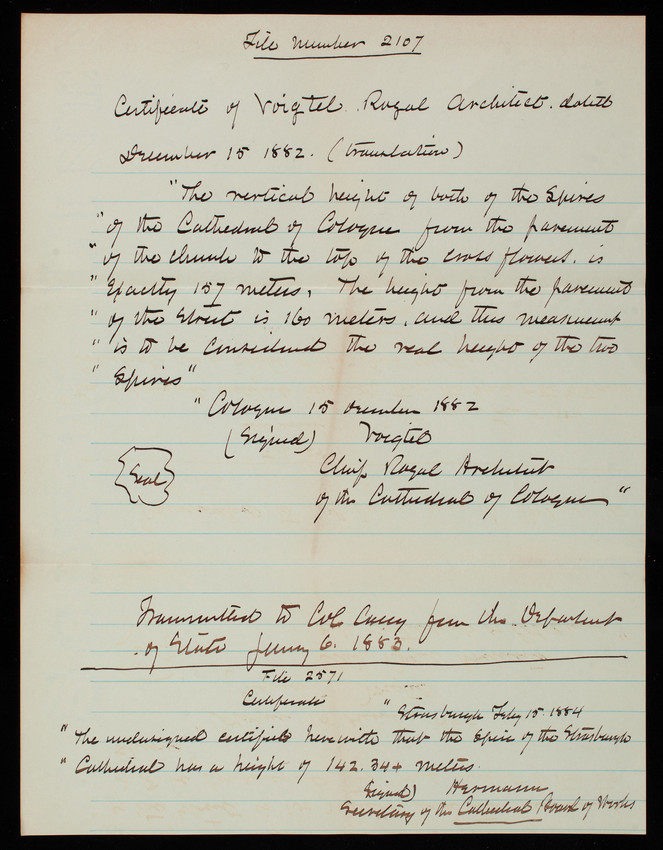 File Number 2107
Certificate of Voigtel Royal Architect. dated
December 15 1882. (translation)
"The vertical height of both of the Spires
"of the Cathedral of Cologne from the pavement
"of the church to the top of the cross flowers, is
"Exactly 157 meters, The height from the pavement
"of the Street is 160 meters, and this measurement
"is to be considered the real height of the two
"Spires"
"Cologne 15 December 1882
(Signed) Voigtel
Seal
Chief Royal Architect
of the Cathedral of Cologne"
Transmitted to Col Casey from the Department
of State January 6. 1883.
File 2571
Certificate
"Strasburgh Feby 15. 1884
"The undersigned certifies herewith that the Spire of the Strasburgh
"Cathedral has a height of 142.34+ meters.
Signed) Hermann
Secretary of the Cathedral Board of Works